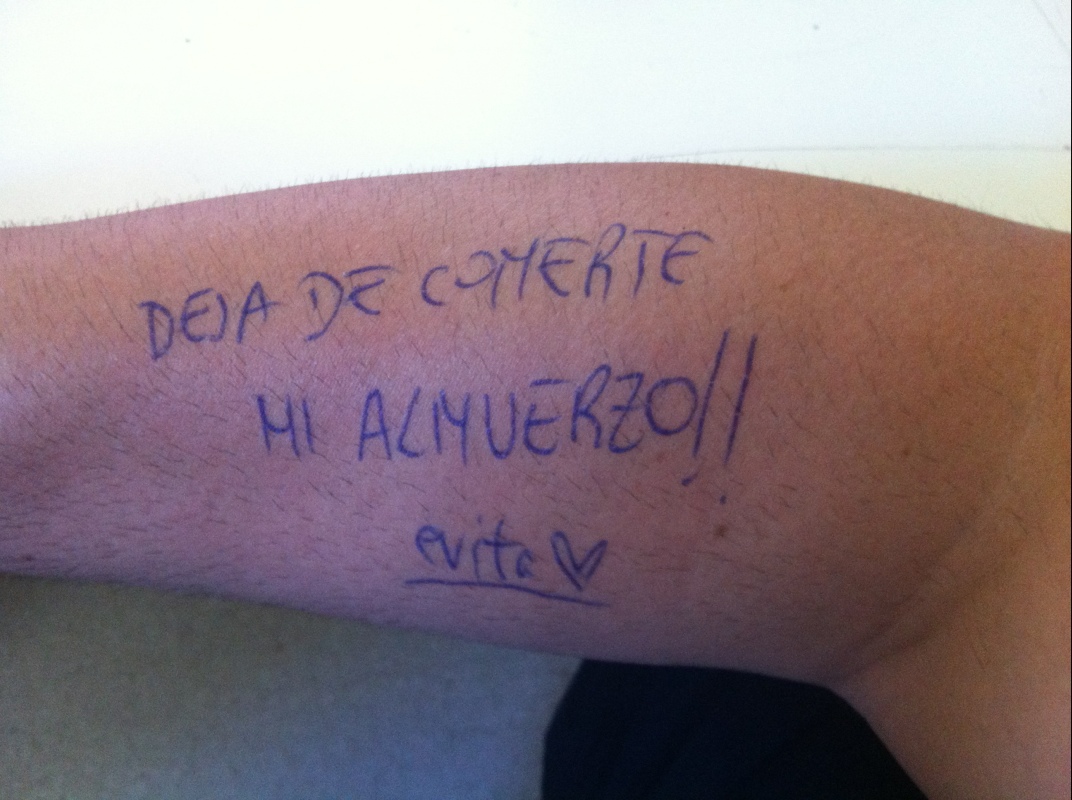 DEJA DE COMERTE
MI ALMUERZO!!
evita ♡